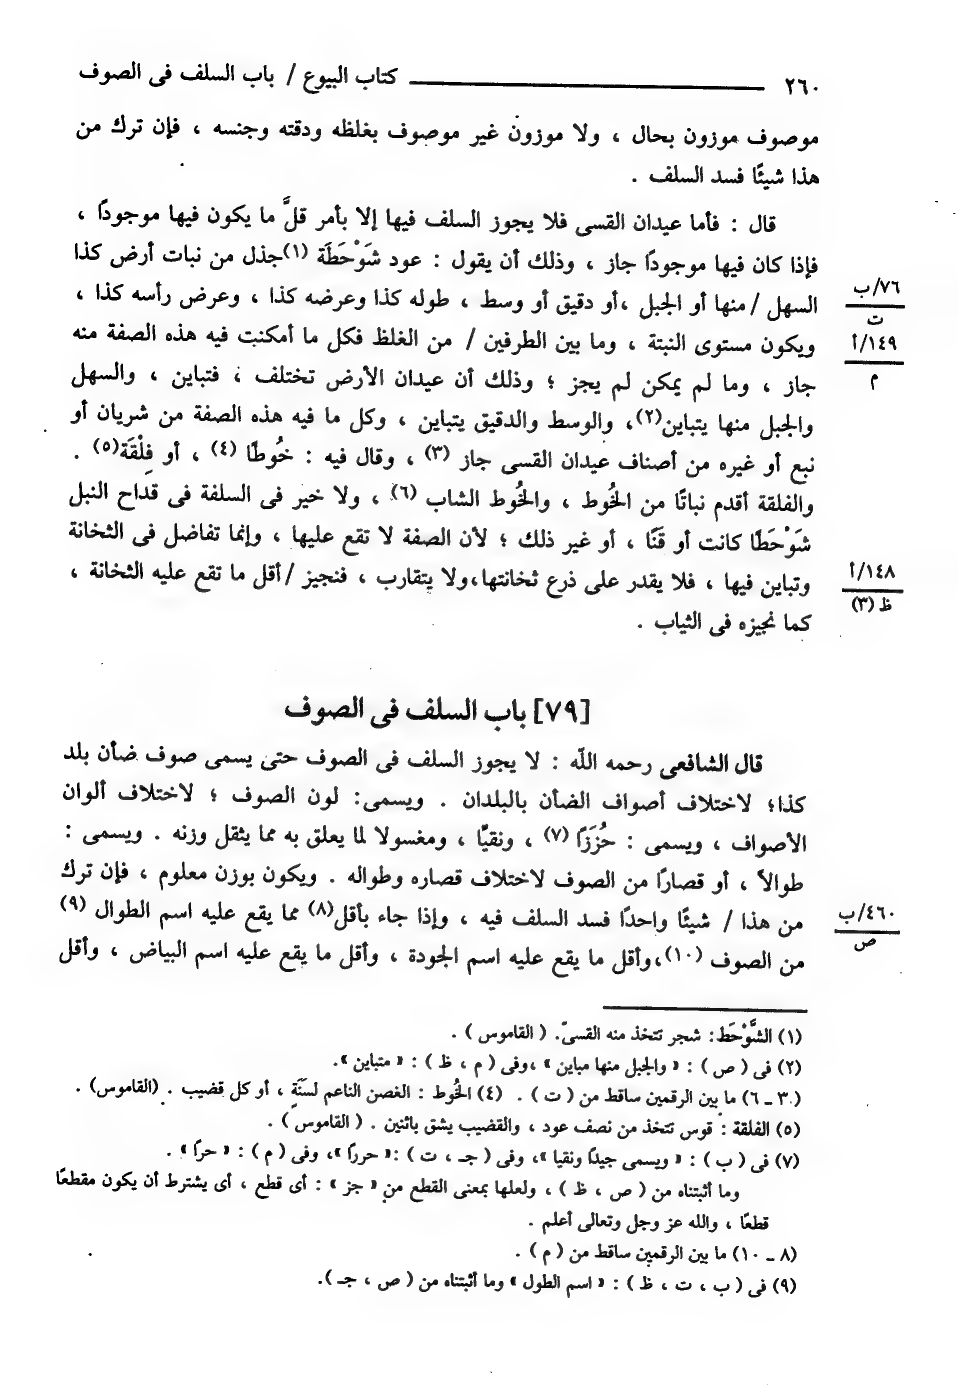 ٢٦٠ كتاب البيوع / باب السلف فى الصوف
موصوف موزون بحال ، ولا موزون غير موصوف بغلظه ودقته وجنسه ، فإن ترك من
هذا شيئًا فسد السلف .
قال : فأما عيدان القسى فلا يجوز السلف فيها إلا بأمر قلَّ ما يكون فيها موجودًا ،
فإذا كان فيها موجودًا جاز ، وذلك أن يقول : عود شَوْحَطَة (١)جذل من نبات أرض كذا
السهل / منها أو الجبل ،أو دقيق أو وسط ، طوله كذا وعرضه كذا ، وعرض رأسه كذا ،
٧٦/ب
ت
ويكون مستوى النبتة ، وما بين الطرفين / من الغلظ فكل ما أمكنت فيه هذه الصفة منه
١٤٩/أ
م
جاز ، وما لم يمكن لم يجز ؛ وذلك أن عيدان الأرض تختلف ، فتباين ، والسهل
والجبل منها يتباين(٢)، والوسط والدقيق يتباين ، وكل ما فيه هذه الصفة من شريان أو
نبع أو غيره من أصناف عيدان القسى جاز (٣) ، وقال فيه : خُوطًا (٤) ، أو فِلْقَة(٥) .
والفلقة أقدم نباتًا من الخُوط ، والخُوط الشاب (٦) ، ولا خير فى السلفة فى قداح النبل
شَوْحَطًا كانت أو قَنًا ، أو غير ذلك ؛ لأن الصفة لا تقع عليها ، وإنما تفاضل فى الثخانة
وتباين فيها ، فلا يقدر على ذرع ثخانتها،ولا يتقارب ، فنجيز /أقل ما تقع عليه الثخانة ،
١٤٨/أ
ظ (٣)
كما نجيزه فى الثياب .
[٧٩] باب السلف فى الصوف
قال الشافعى رحمه الله : لا يجوز السلف فى الصوف حتى يسمى صوف ضأن بلد
كذا؛ لاختلاف أصواف الضأن بالبلدان . ويسمى: لون الصوف ؛ لاختلاف ألوان
الأصواف ، ويسمى : حُزَزًا (٧) ، ونقيًا ، ومغسولا لما يعلق به مما يثقل وزنه . ويسمى :
طوالاً ، أو قصارًا من الصوف لاختلاف قصاره وطواله . ويكون بوزن معلوم ، فإن ترك
من هذا / شيئًا واحدًا فسد السلف فيه ، وإذا جاء بأقل(٨) مما يقع عليه اسم الطوال (٩)
٤٦٠/ب
ص
من الصوف (١٠)،وأقل ما يقع عليه اسم الجودة ، وأقل ما يقع عليه اسم البياض ، وأقل
(١) الشَّوْحَط: شجر تتخذ منه القسىّ. ( القاموس ) .
(٢) فى ( ص ) : « والجبل منها مباين » ،وفى ( م ، ظ ) : « متباين ».
(٣ ـ ٦) ما بين الرقمين ساقط من ( ت ) . (٤) الخُوط : الغصن الناعم لسَنَةٍ ، أو كل قضيب . (القاموس) .
(٥) الفلقة : قوس تتخذ من نصف عود ، والقضيب يشق باثنين . ( القاموس ) .
(٧) فى ( ب ) : « ويسمى جيدًا ونقيا »، وفى ( جـ ، ت ) :« حررًا »، وفى ( م ) : « حرًا » .
وما أثبتناه من ( ص ، ظ ) ، ولعلها بمعنى القطع من « جز » : أى قطع ، أى يشترط أن يكون مقطعًا
قطعًا ، والله عز وجل وتعالى أعلم .
(٨ ـ ١٠) ما بين الرقمين ساقط من ( م ) .
(٩) فى ( ب ، ت ، ظ ) : « اسم الطول » وما أثبتناه من ( ص ، جـ ).